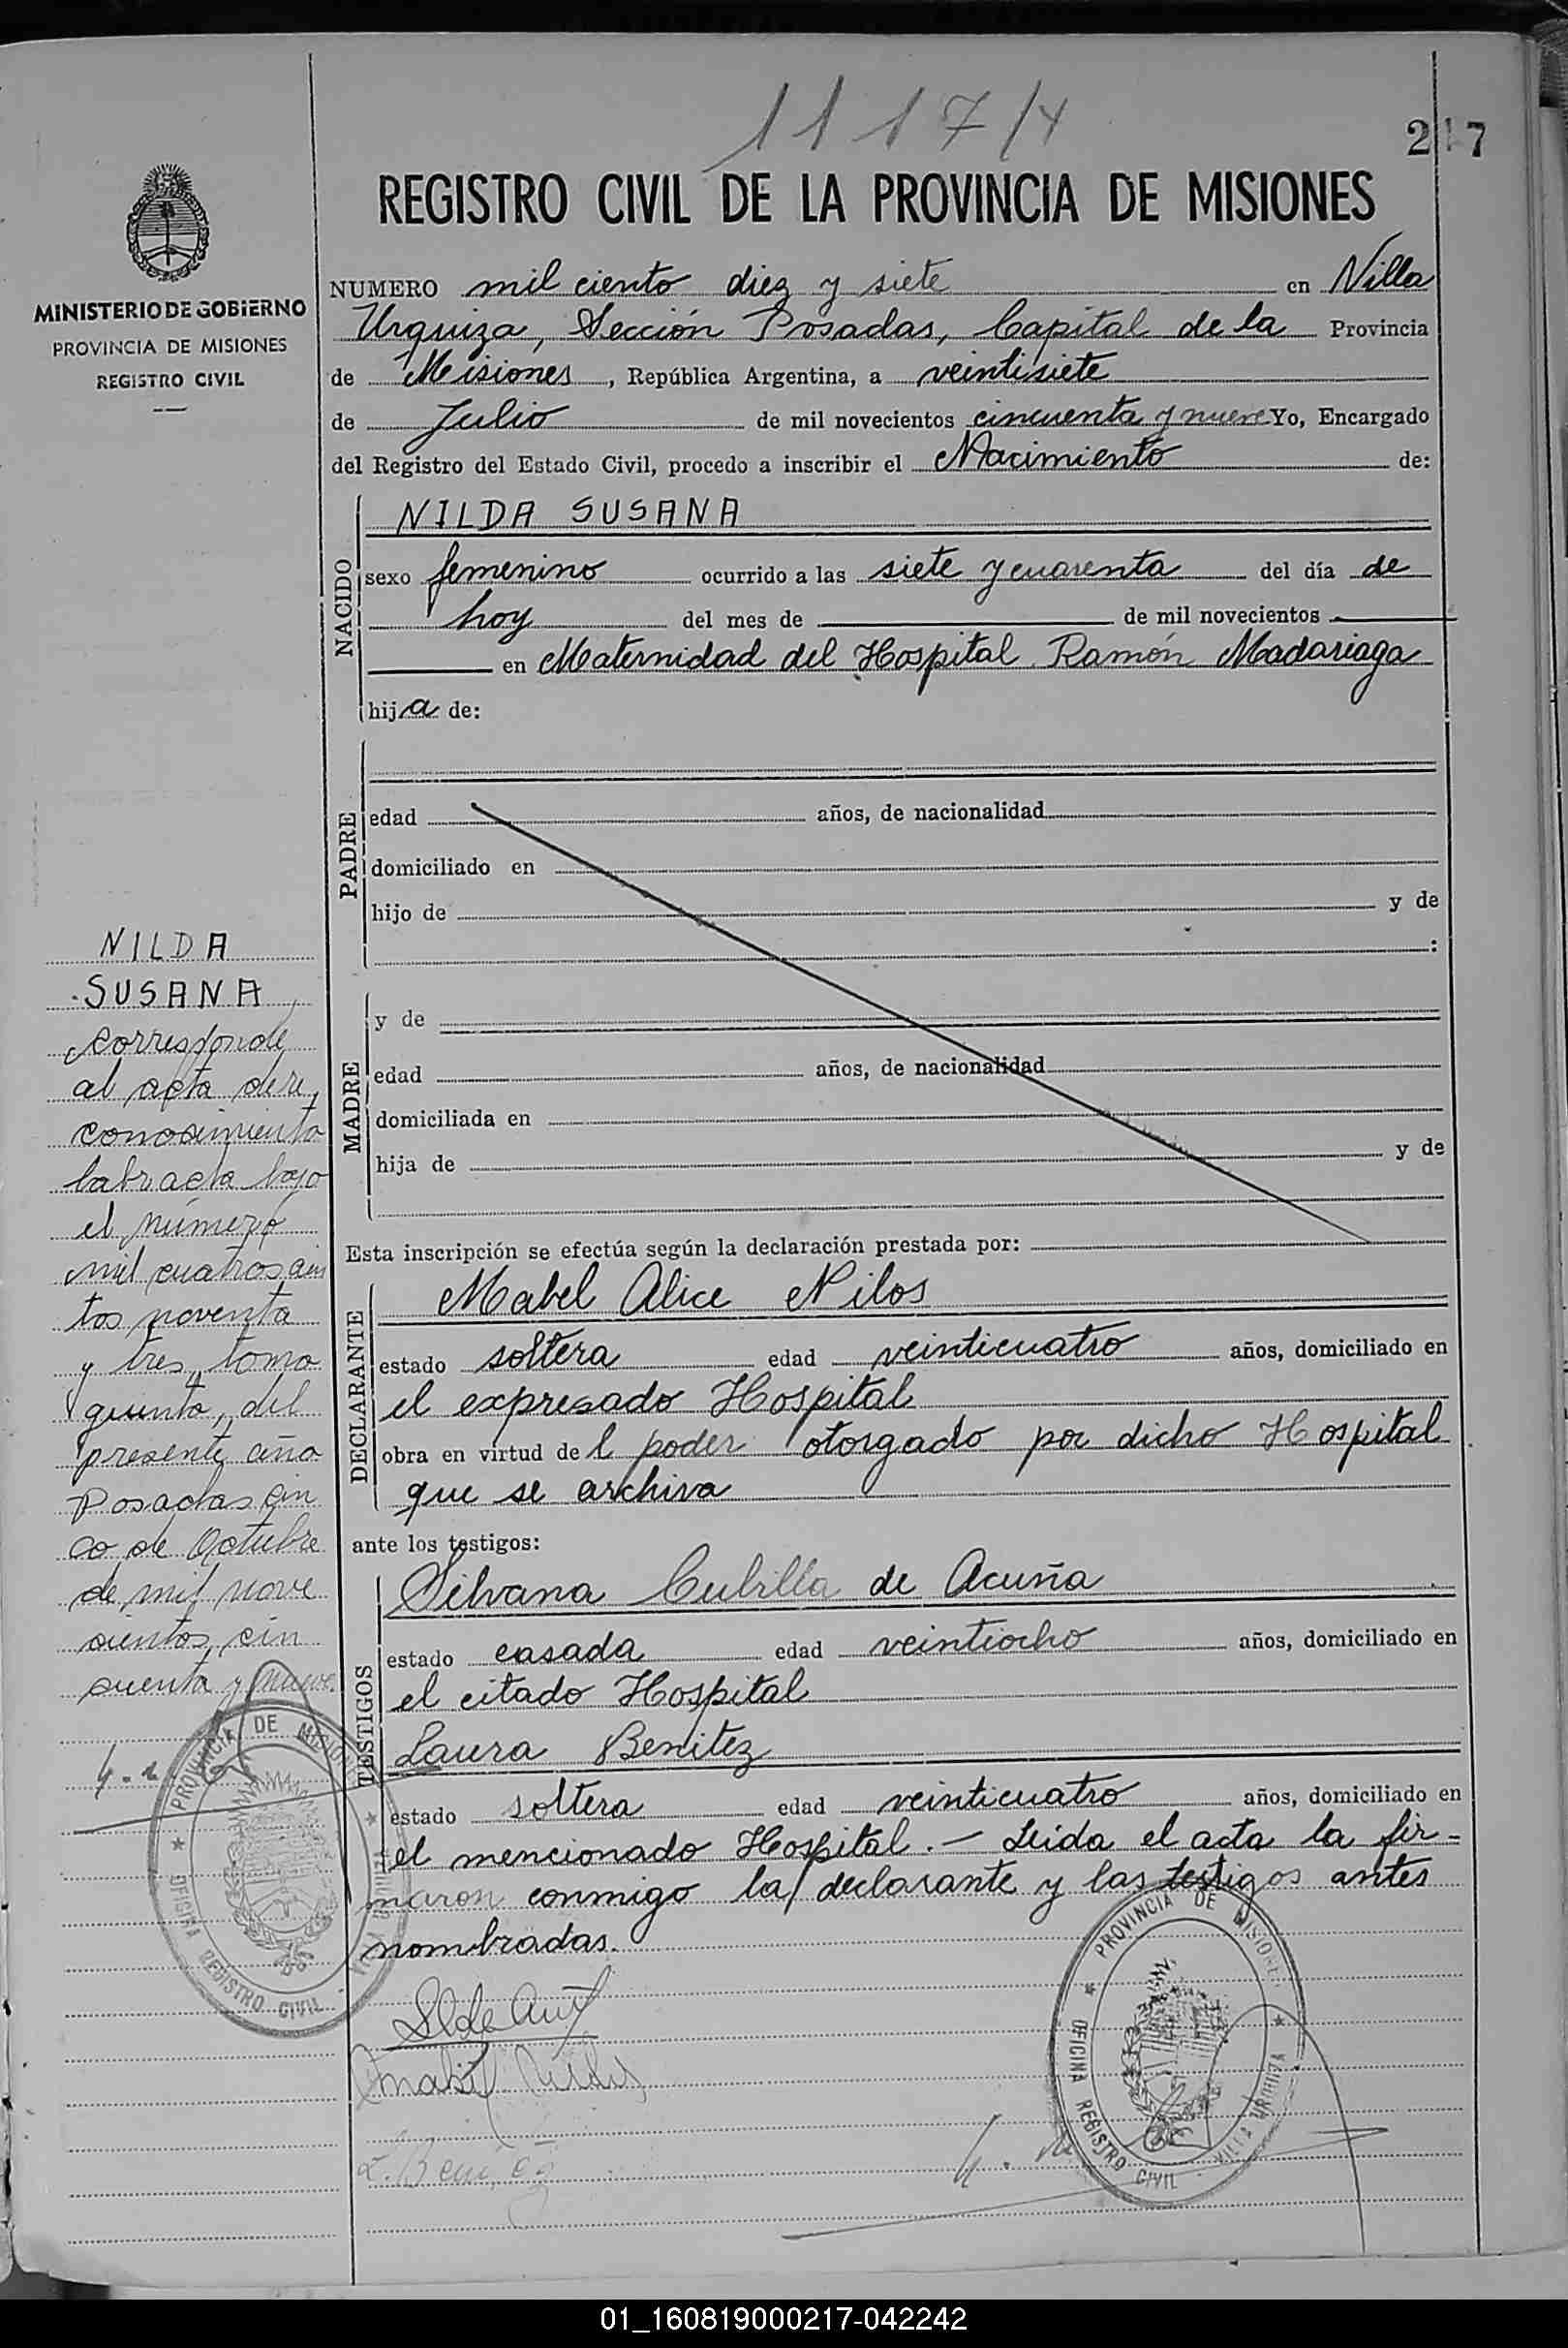 1117/4
217
REGISTRO CIVIL DE LA PROVINCIA DE MISIONES
MINISTERIO DE GOBIERNO
PROVINCIA DE MISIONES
REGISTRO CIVIL
NUMERO mil ciento diez y siete en Villa
Urquiza, Sección Posadas, Capital de la Provincia
de Misiones, República Argentina, a veintisiete
de Julio de mil novecientos cincuenta y nueve Yo, Encargado
del Registro del Estado Civil, procedo a inscribir el Nacimiento de:
NACIDO
NILDA SUSANA
sexo femenino ocurrido a las siete y cuarenta del día de
hoy del mes de de mil novecientos
en Maternidad del Hospital Ramón Madariaga
hija de:
PADRE
edad años, de nacionalidad
domiciliado en
hijo de y de
:
MADRE
y de
edad años, de nacionalidad
domiciliada en
hija de y de
Esta inscripción se efectúa según la declaración prestada por:
DECLARANTE
Mabel Alice Nilos
estado soltera edad veinticuatro años, domiciliado en
el expresado Hospital
obra en virtud del poder otorgado por dicho Hospital
que se archiva
ante los testigos:
TESTIGOS
Silvana Cubilla de Acuña
estado casada edad veintiocho años, domiciliado en
el citado Hospital
Laura Benitez
estado soltera edad veinticuatro años, domiciliado en
el mencionado Hospital.- Leida el acta la fir-
maron conmigo la declarante y las testigos antes
nombradas.
L. Benitez
NILDA
SUSANA,
corresponde
al acta de re
conocimiento
labrada bajo
el número
mil cuatroscien
tos noventa
y tres, tomo
quinto, del
presente año
Posadas cin
co de Octubre
de mil nove
cientos cin
cuenta y nueve.
PROVINCIA DE MISIONES
OFICINA REGISTRO CIVIL
VILLA URQUIZA
PROVINCIA DE MISIONES
OFICINA REGISTRO CIVIL
VILLA URQUIZA
01_160819000217-042242